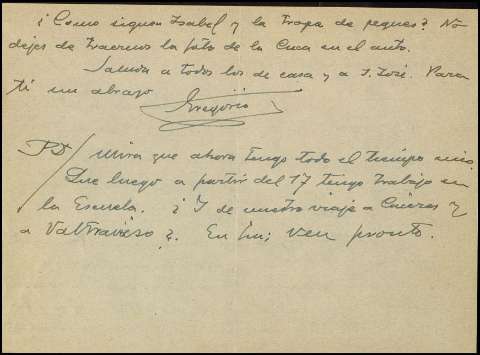 ¿Como siguen Isabel y la tropa de peques? No
dejes de traernos la foto de la Cuca en el auto.
Saluda a todos los de casa y a J. José. Para
ti un abrazo
Gregorio
PD/ Mira que ahora tengo todo el tiempo mio.
Que luego a partir del 17 tengo trabajo en
la Escuela. ¿Y de nuestro viaje a y
a Valtravieso?. En fin; ven pronto.